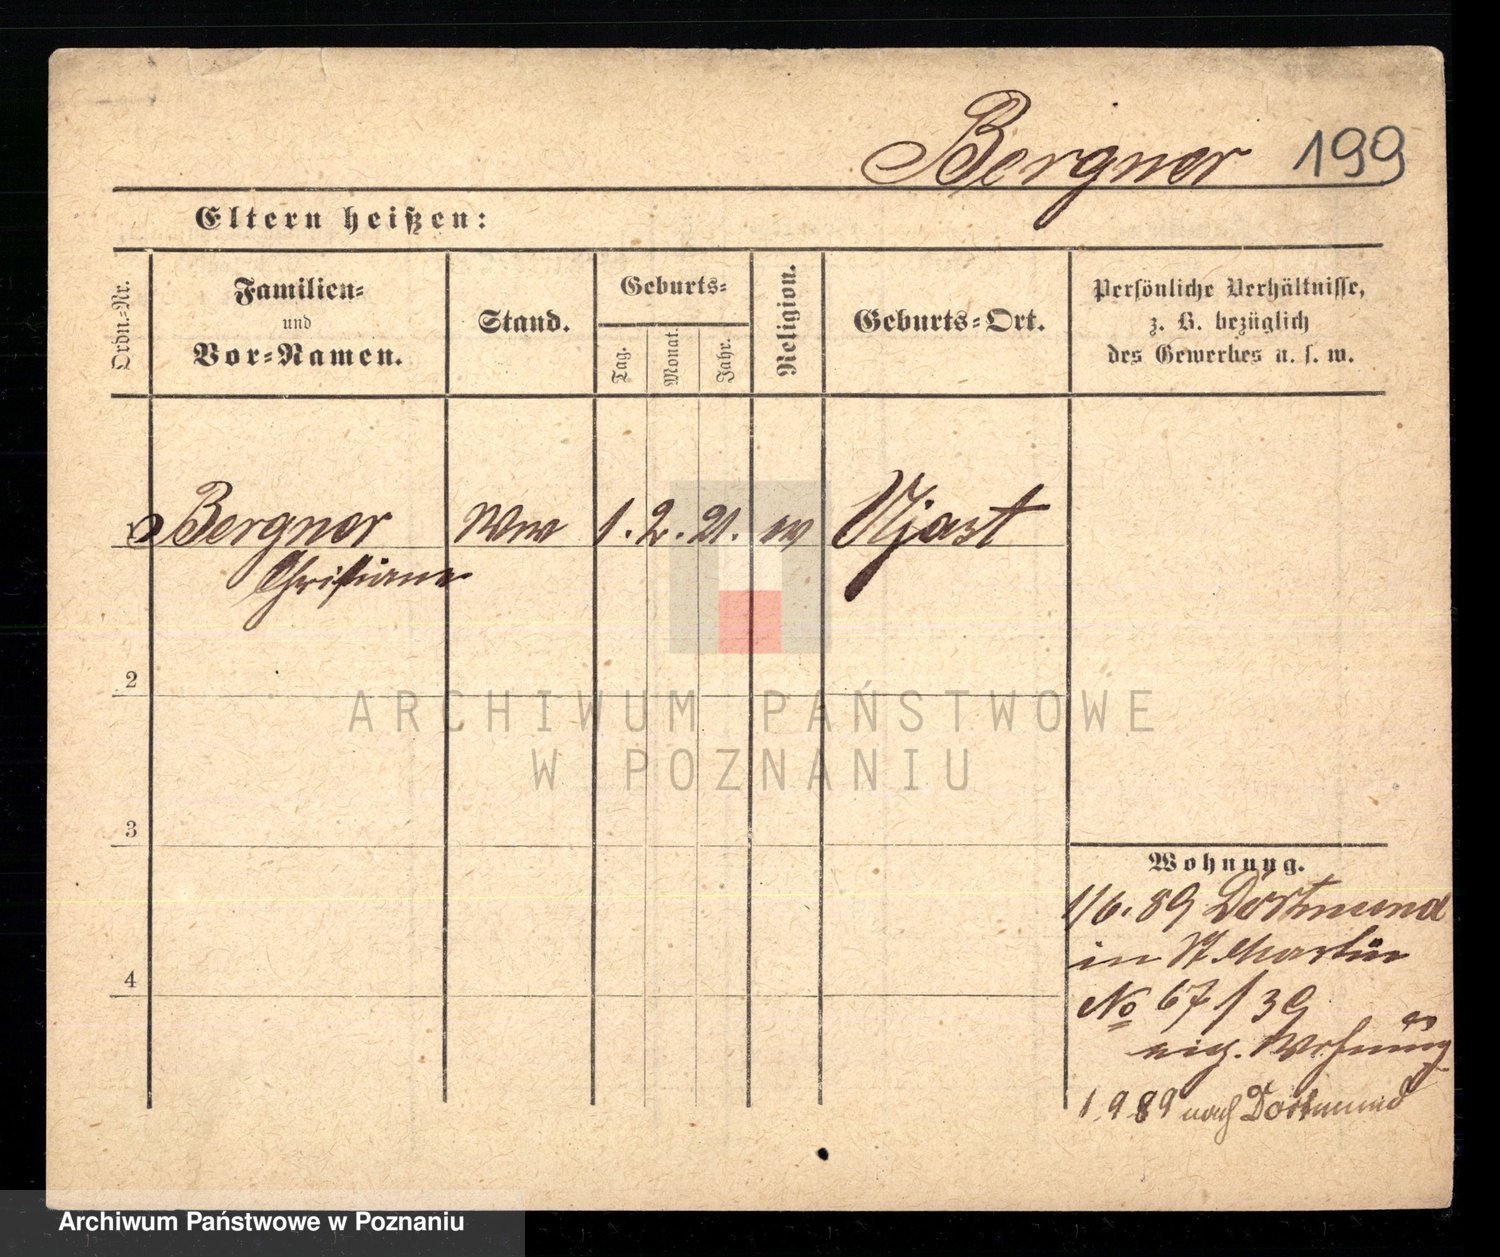 Bergner 199
Eltern heißen:
Ordn.-Nr.
Familien-
und
Vor-Namen.
Stand.
Geburts-
Tag.
Monat.
Jahr.
Religion.
Geburts-Ort.
Persönliche Verhältnisse,
z. B. bezüglich
des Gewerbes u. s. w.
Bergner Wwe 1. 2. 21. ev Ujast
Christiane
2
ARCHIWUM PAŃSTWOWE
W POZNANIU
3
Wohnung.
1/6. 89 Dortmund
in St. Martin
4
No 67 / 39
eig. Wohnung
1. 9. 89 nach Dortmund
Archiwum Państwowe w Poznaniu